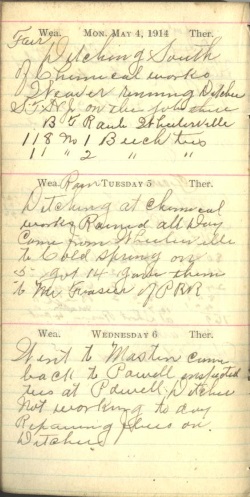 Wea. MON. MAY 4, 1914 Ther.
Fair
Ditching South
of Chemical works
Weaver running Ditcher
S.F. & J. on the
B F Raub Wheelerville
118 No 1 Beech ties
1 " 2 " "
Wea. Rain TUESDAY 5 Ther.
Ditching at Chemical
works Rained all Day
Come from Wheelerville
to Cold Spring on
5 - got 14 gave them
to Mr Frasier of PRR
Wea. WEDNESDAY 6 Ther.
Went to Mastin come
back to Powell inspected
ties at Powell Ditcher
Not working to day
Repairing flues on
Ditcher